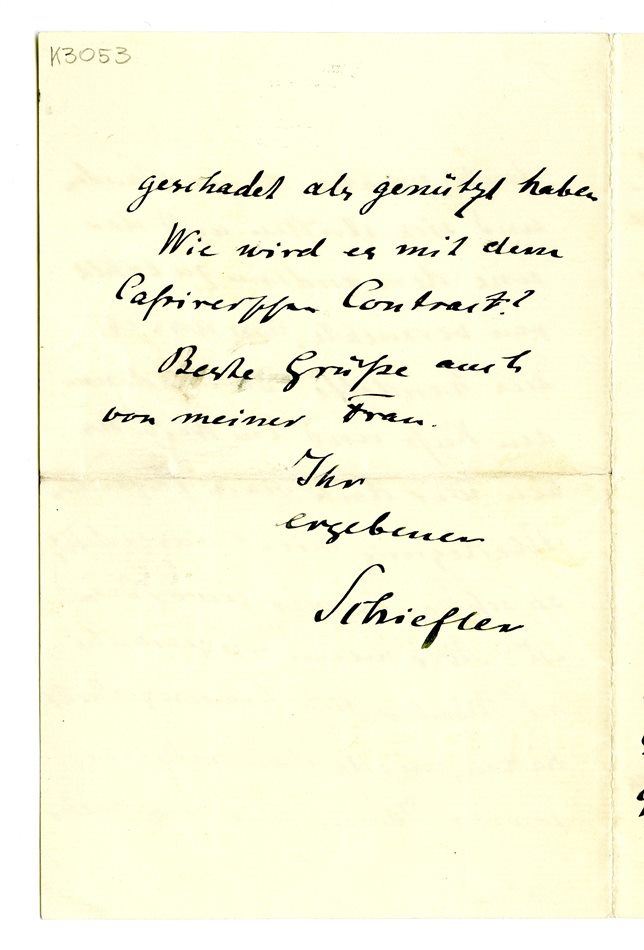 K3053
geschadet als genützt haben
Wie wird es mit dem
Cassirerschen Contract?
Beste Grüße auch
von meiner Frau.
Ihr
ergebener
Schiefler